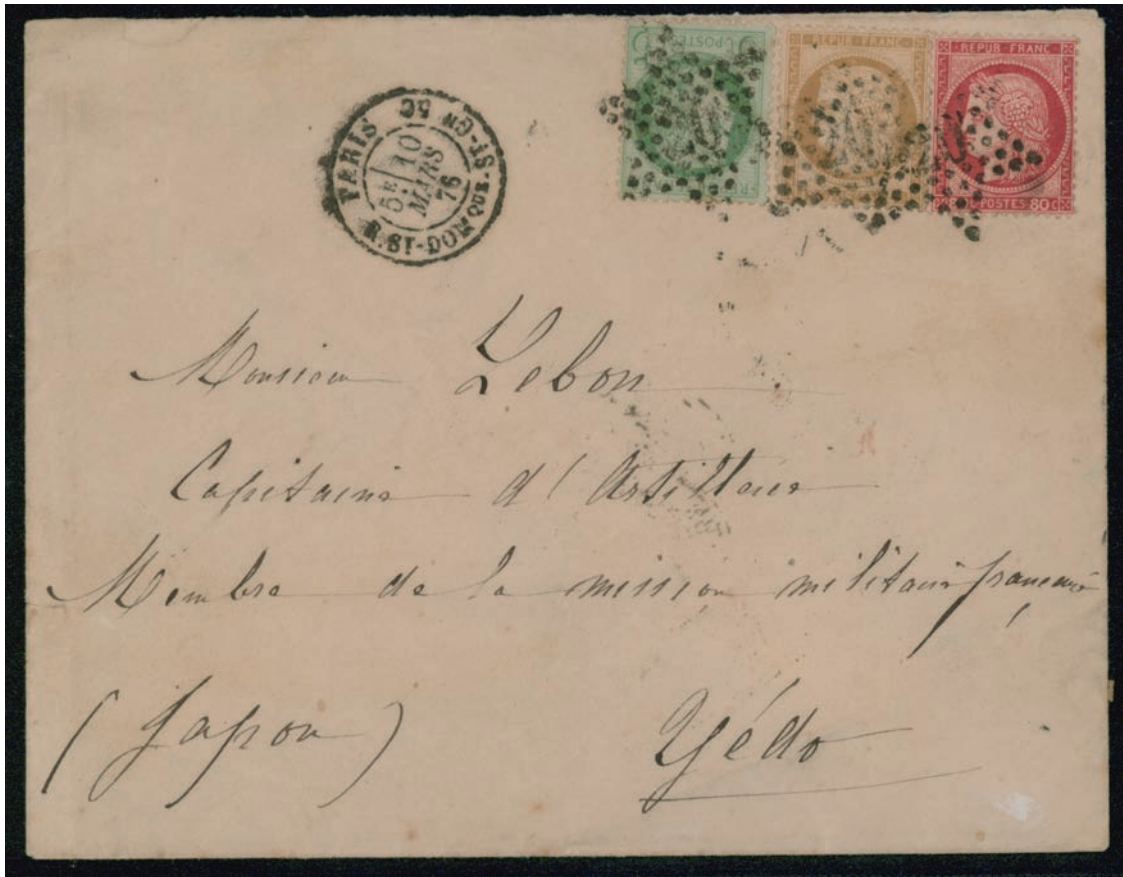 C.POSTE
REPUB FRANC
REPUB FRANC
80C POSTES 80C
PARIS
5E / 10
MARS
76
R.ST-DOMQUE-ST-GN 50
Monsieur Lebon
Capitaine d'Artillerie
Membre de la mission militaire française
(Japon) Yédo